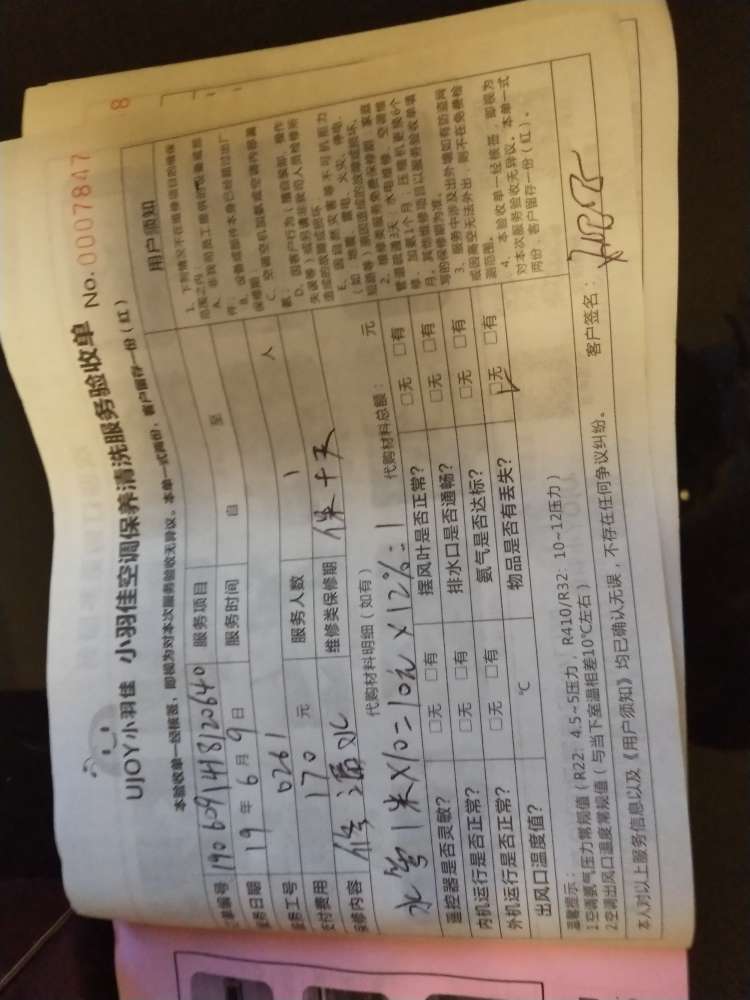 UJOY小羽佳 小羽佳空调保养清洗服务验收单 No. 0007847
8
本验收单一经核签，即视为对本次服务验收无异议。本单一式两份，客户留存一份（红）
订单编号 190609141812064 0 服务项目
服务日期 19 年 6 月 9 日 服务时间 自 至
服务工号 0261 服务人数 1 人
支付费用 170 元 维修类保修期 保十天
保修内容 修漏水
代购材料明细（如有） 代购材料总额： 元
水管1米×10=10元×12%=1
遥控器是否灵敏？ □无 □有 摆风叶是否正常？ □无 □有
内机运行是否正常？ □无 □有 排水口是否通畅？ □无 □有
外机运行是否正常？ □无 □有 氨气是否达标？ □无 □有
出风口温度值？ ℃ 物品是否有丢失？ □无 □有
用户须知
1、下列情况不在维修项目的维保
范围之内：
A、非我司员工提供的设备或部
件；
B、设备或部件本身已经超过出厂
保修期；
C、空调空机加氨或空调内部漏
氨；
D、因客户行为（擅自候卸、操作
失误等）或另请非我司人员检修所
造成的故障或损坏
E、因自然灾害等不可抗拒力
（如：地震、雷电、火灾、停电、
短路等）原因造成的故障或损坏。
2、维修类服务免费保修期：家庭
管道疏通3天，水电维修、空调维
修、加氨1个月，压缩机更换6个
月，其他维修项目以服务验收单填
写的保修期为准。
3、服务中涉及出外墙如有防盗网
或因高空无法外出，则不在免费检
测范围。
4、本验收单一经核签，即视为
对本次服务验收无异议。本单一式
两份，客户留存一份（红）。
温馨提示：
1空调氨气压力常规值（R22：4.5~5压力，R410/R32：10~12压力）
2空调出风口温度常规值（与当下室温相差10℃左右）
本人对以上服务信息以及《用户须知》均已确认无误，不存在任何争议纠纷。 客户签名：